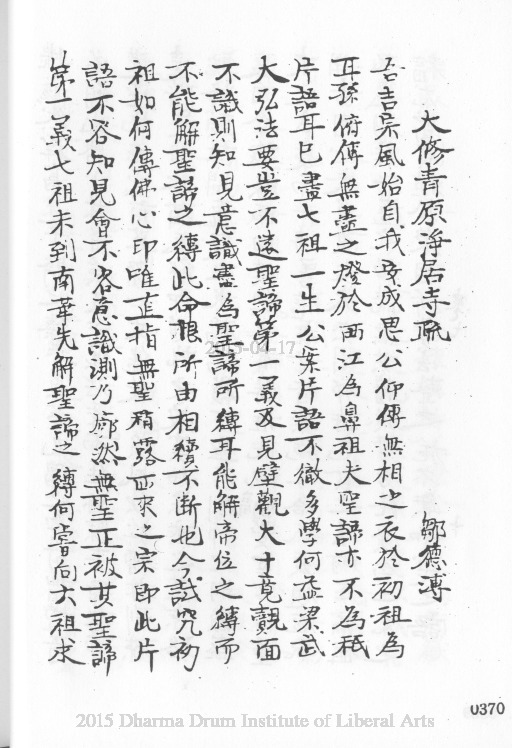 大修青原淨居寺疏
鄒德溥
吾吉宗風始自我安成思公仰傳無相之衣於初祖為
耳孫俯傳無盡之燈於西江為鼻祖夫聖諦亦不為秖
片語耳已盡七祖一生公案片語不徹多學何益梁武
大弘法要豈不遠聖諦第一義及見壁觀大士竟覿面
不識則知見意識盡為聖諦所縛耳能解帝位之縛而
不能解聖諦之縛此命根所由相續不斷也今試究初
祖如何傳佛心印唯直指無聖稍露西來之宗即此片
語不容知見會不容意識測乃廓然無聖正被其聖諦
第一義七祖未到南華先解聖諦之縛何嘗向六祖求
2015-04-17
0370
2015 Dharma Drum Institute of Liberal Arts